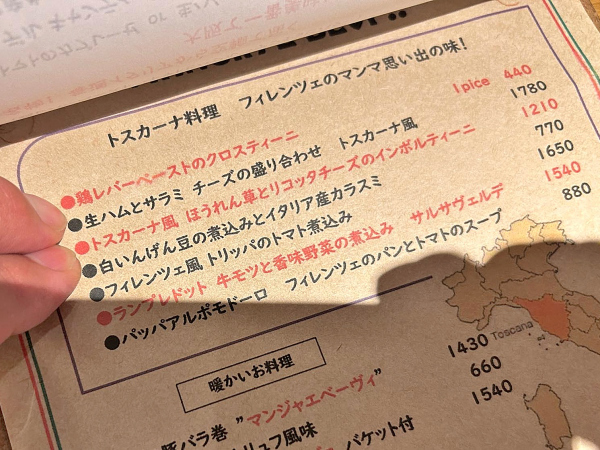 トスカーナ料理 フィレンツェのマンマ思い出の味！
●鶏レバーペーストのクロスティーニ 1pice 440
●生ハムとサラミ チーズの盛り合わせ トスカーナ風 1780
●トスカーナ風 ほうれん草とリコッタチーズのインボルティーニ 1210
●白いんげん豆の煮込みとイタリア産カラスミ 770
●フィレンツェ風 トリッパのトマト煮込み 1650
●ランプレドット 牛モツと香味野菜の煮込み サルサヴェルデ 1540
●パッパアルポモドーロ フィレンツェのパンとトマトのスープ 880
Toscana
暖かいお料理
豚バラ巻 "マンジャエベーヴィ" 1430
トリュフ風味 660
バケット付 1540